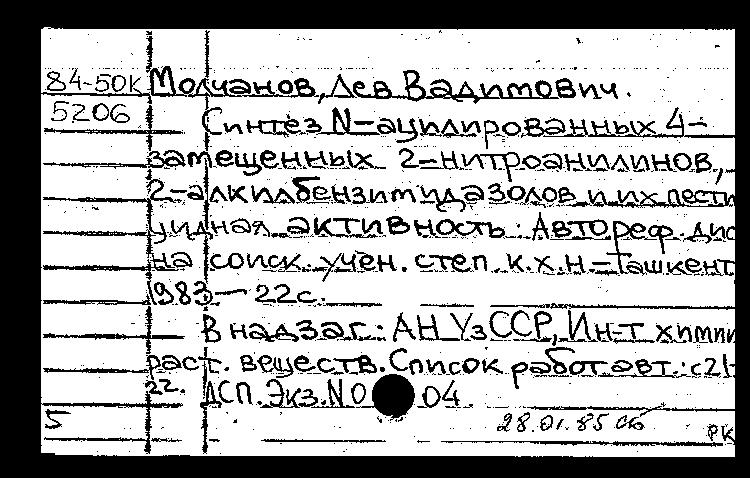 84-50К Молчанов, Лев Вадимович.
5206 Синтез N-ацилированных 4-
замещенных 2-нитроанилинов,
2-алкилбензимидазолов и их пести
цидная активность: Автореф. дис
на соиск. учен. степ. к.х.н.-Ташкент
1983-22с.
В надзаг.: АН УзССР, Ин-т химии
раст. веществ. Список работ авт.: с21-
22. ДСП. Экз. NO 04.
5 28.01.85
РК